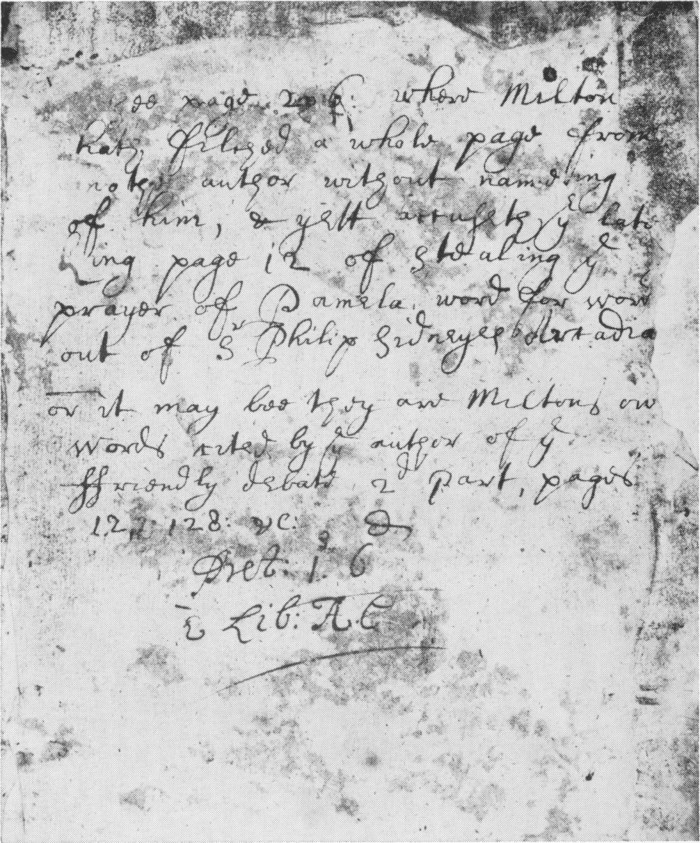 see page 206: where Milton
hath filched a whole page from
nother author without nameing
of him, & yett accuseth yᵉ late
king page 12 of stealing yᵉ
prayer of Pamela, word for word
out of Sʳ Philip Sidneyes Arcadia
or it may bee they are Miltons own
words cited by yᵉ author of yᵉ
ffriendly debate 2ᵈ Part, pages
127. 128: &c: &
Pret. 1ˢ 6
E Lib: A C